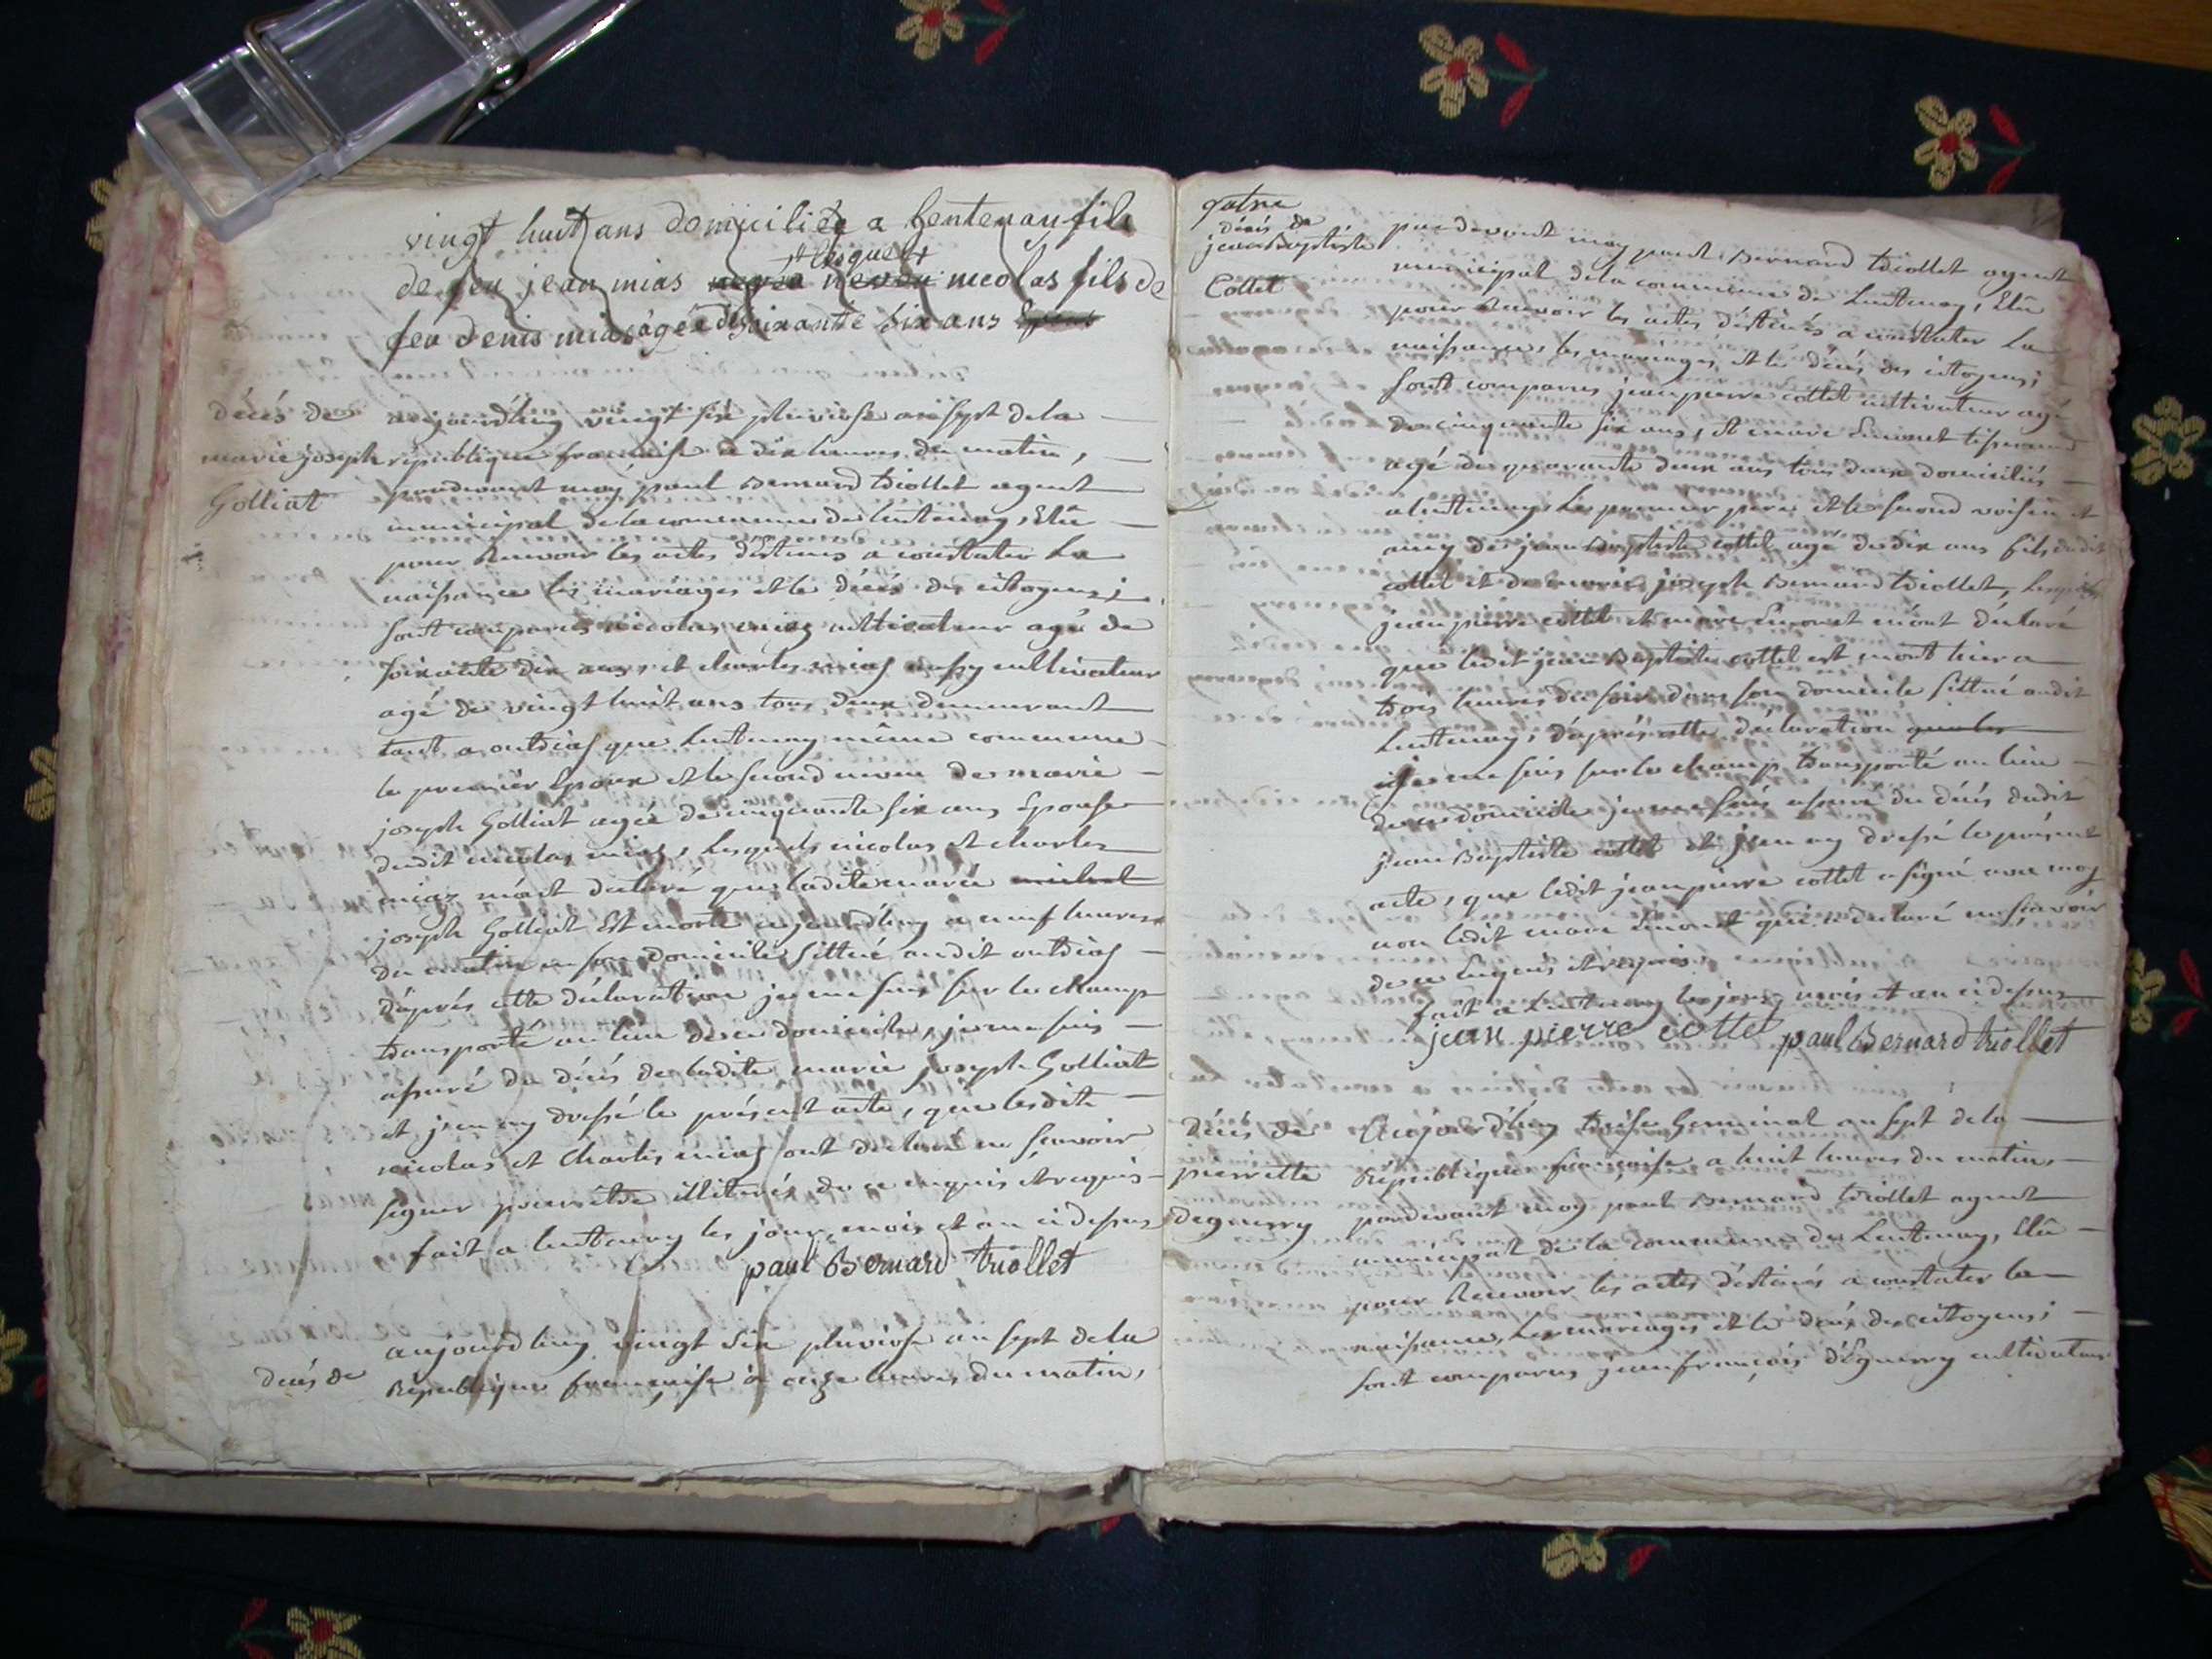 vingt huit ans domiciliée a Lentenay fils
lesquels
de feu jean mias neveu nicolas fils de
feu denis mias agée de soixante six ans
décés de
marie joseph
Golliat
aujourd'huy vingt six pluviose an sept de la
république française a dix heures du matin,
pardevant moy paul Bernard triollet agent
municipal de la commune de lentenay, Elû
pour Recevoir les actes déstinés a constater La
naissance les mariages et le décés des citoyens;
sont comparus nicolas mias cultivateur agé de
soixante dix ans, et charles mias aussy cultivateur
agé de vingt huit ans tous deux demeurant
tant a outrias que Lentenay même commune
le premier Epoux et le second neveu de marie
joseph Golliat agée de cinquante six ans Epouse
dudit nicolas mias, Lesquels nicolas et charles
mias m'ont declaré que ladite marie
joseph Golliat Est morte aujourd'huy a neuf heures
du matin en son domicile sittué audit outrias
d'aprés cette déclaration je me suis sur le champ
transporté au lieu de ce domicile, je me suis
assuré du décés de ladite marie joseph Golliat
et j'en ay dressé le présent acte, que lesdits
nicolas et Charles mias ont declaré ne sçavoir
signer pour etre illiterés de ce enquis et requis
fait a lentenay les jour, mois et an ci dessus
paul Bernard triollet
décés de
aujourd'huy vingt six pluviose an sept de la
Républiques française à onze heures du matin,
décés de
jean Baptiste
Collet
pardevant moy paul Bernard triollet agent
municipal de la commune de Lentenay, Elû
pour Recevoir les actes déstinés a constater La
naissance, les mariages, et le décés des citoyens;
sont comparus jean pierre collet cultivateur agé
de cinquante six ans, et marc Emonet tisserand
agé de quarante deux ans tous deux domiciliés
a lentenay, Le premier pere et le second voisin et
amy de jean Baptiste collet agé de dix ans fils dudit
collet et de marie joseph Bernard triollet, Lesquels
jean pierre collet et marc Emonet m'ont déclaré
que ledit jean Baptiste collet est mort hier a
trois heures du soir dans son domicile sittué audit
Lentenay, d'aprés cette déclaration
je me suis sur le champ transporté au lieu
de ce domicile je me suis assuré du décés dudit
jean Baptiste collet et j'en ay dressé le présent
acte, que ledit jean pierre collet a signé avec moy
non ledit marc Emonet qui a declaré ne sçavoir
de ce Enquis et requis
fait a Lentenay les jour, mois et an ci dessus
jean pierre collet paul Bernard triollet
Décés de
pierrette
deguerry
Aujourd'huy treise Germinal an sept de la
République française a huit heures du matin,
pardevant moy paul Bernard triollet agent
municipal de la commune de Lentenay, Elû
pour Recevoir les actes déstinés a constater la
naissance, Les mariages et le décés des citoyens;
sont comparus jean françois d'Eguerry cultivateur